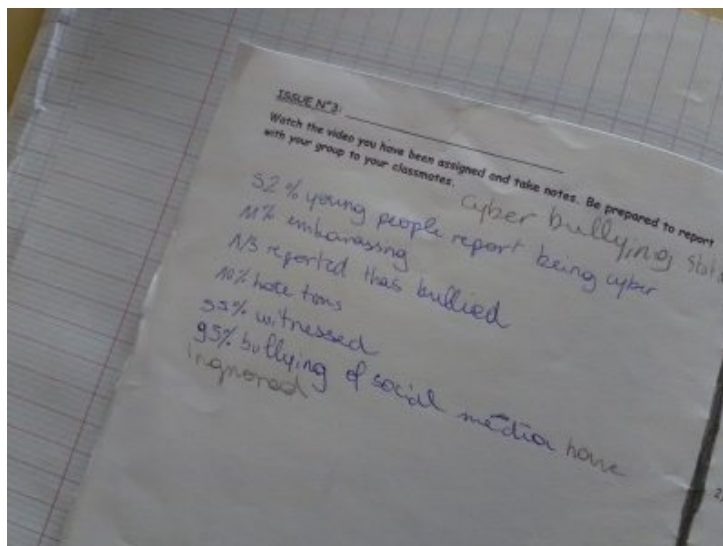 ISSUE N°3:
Watch the video you have been assigned and take notes. Be prepared to report
with your group to your classmates.
cyber bullying stats
52% young people report being cyber
11% embarassing
1/3 reported thas bullied
10% hate
55% witnessed
95% bullying of social media have
ingnored
2)